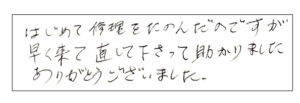 はじめて修理をたのんだのですが
早く来て直して下さって助かりました
ありがとうございました。